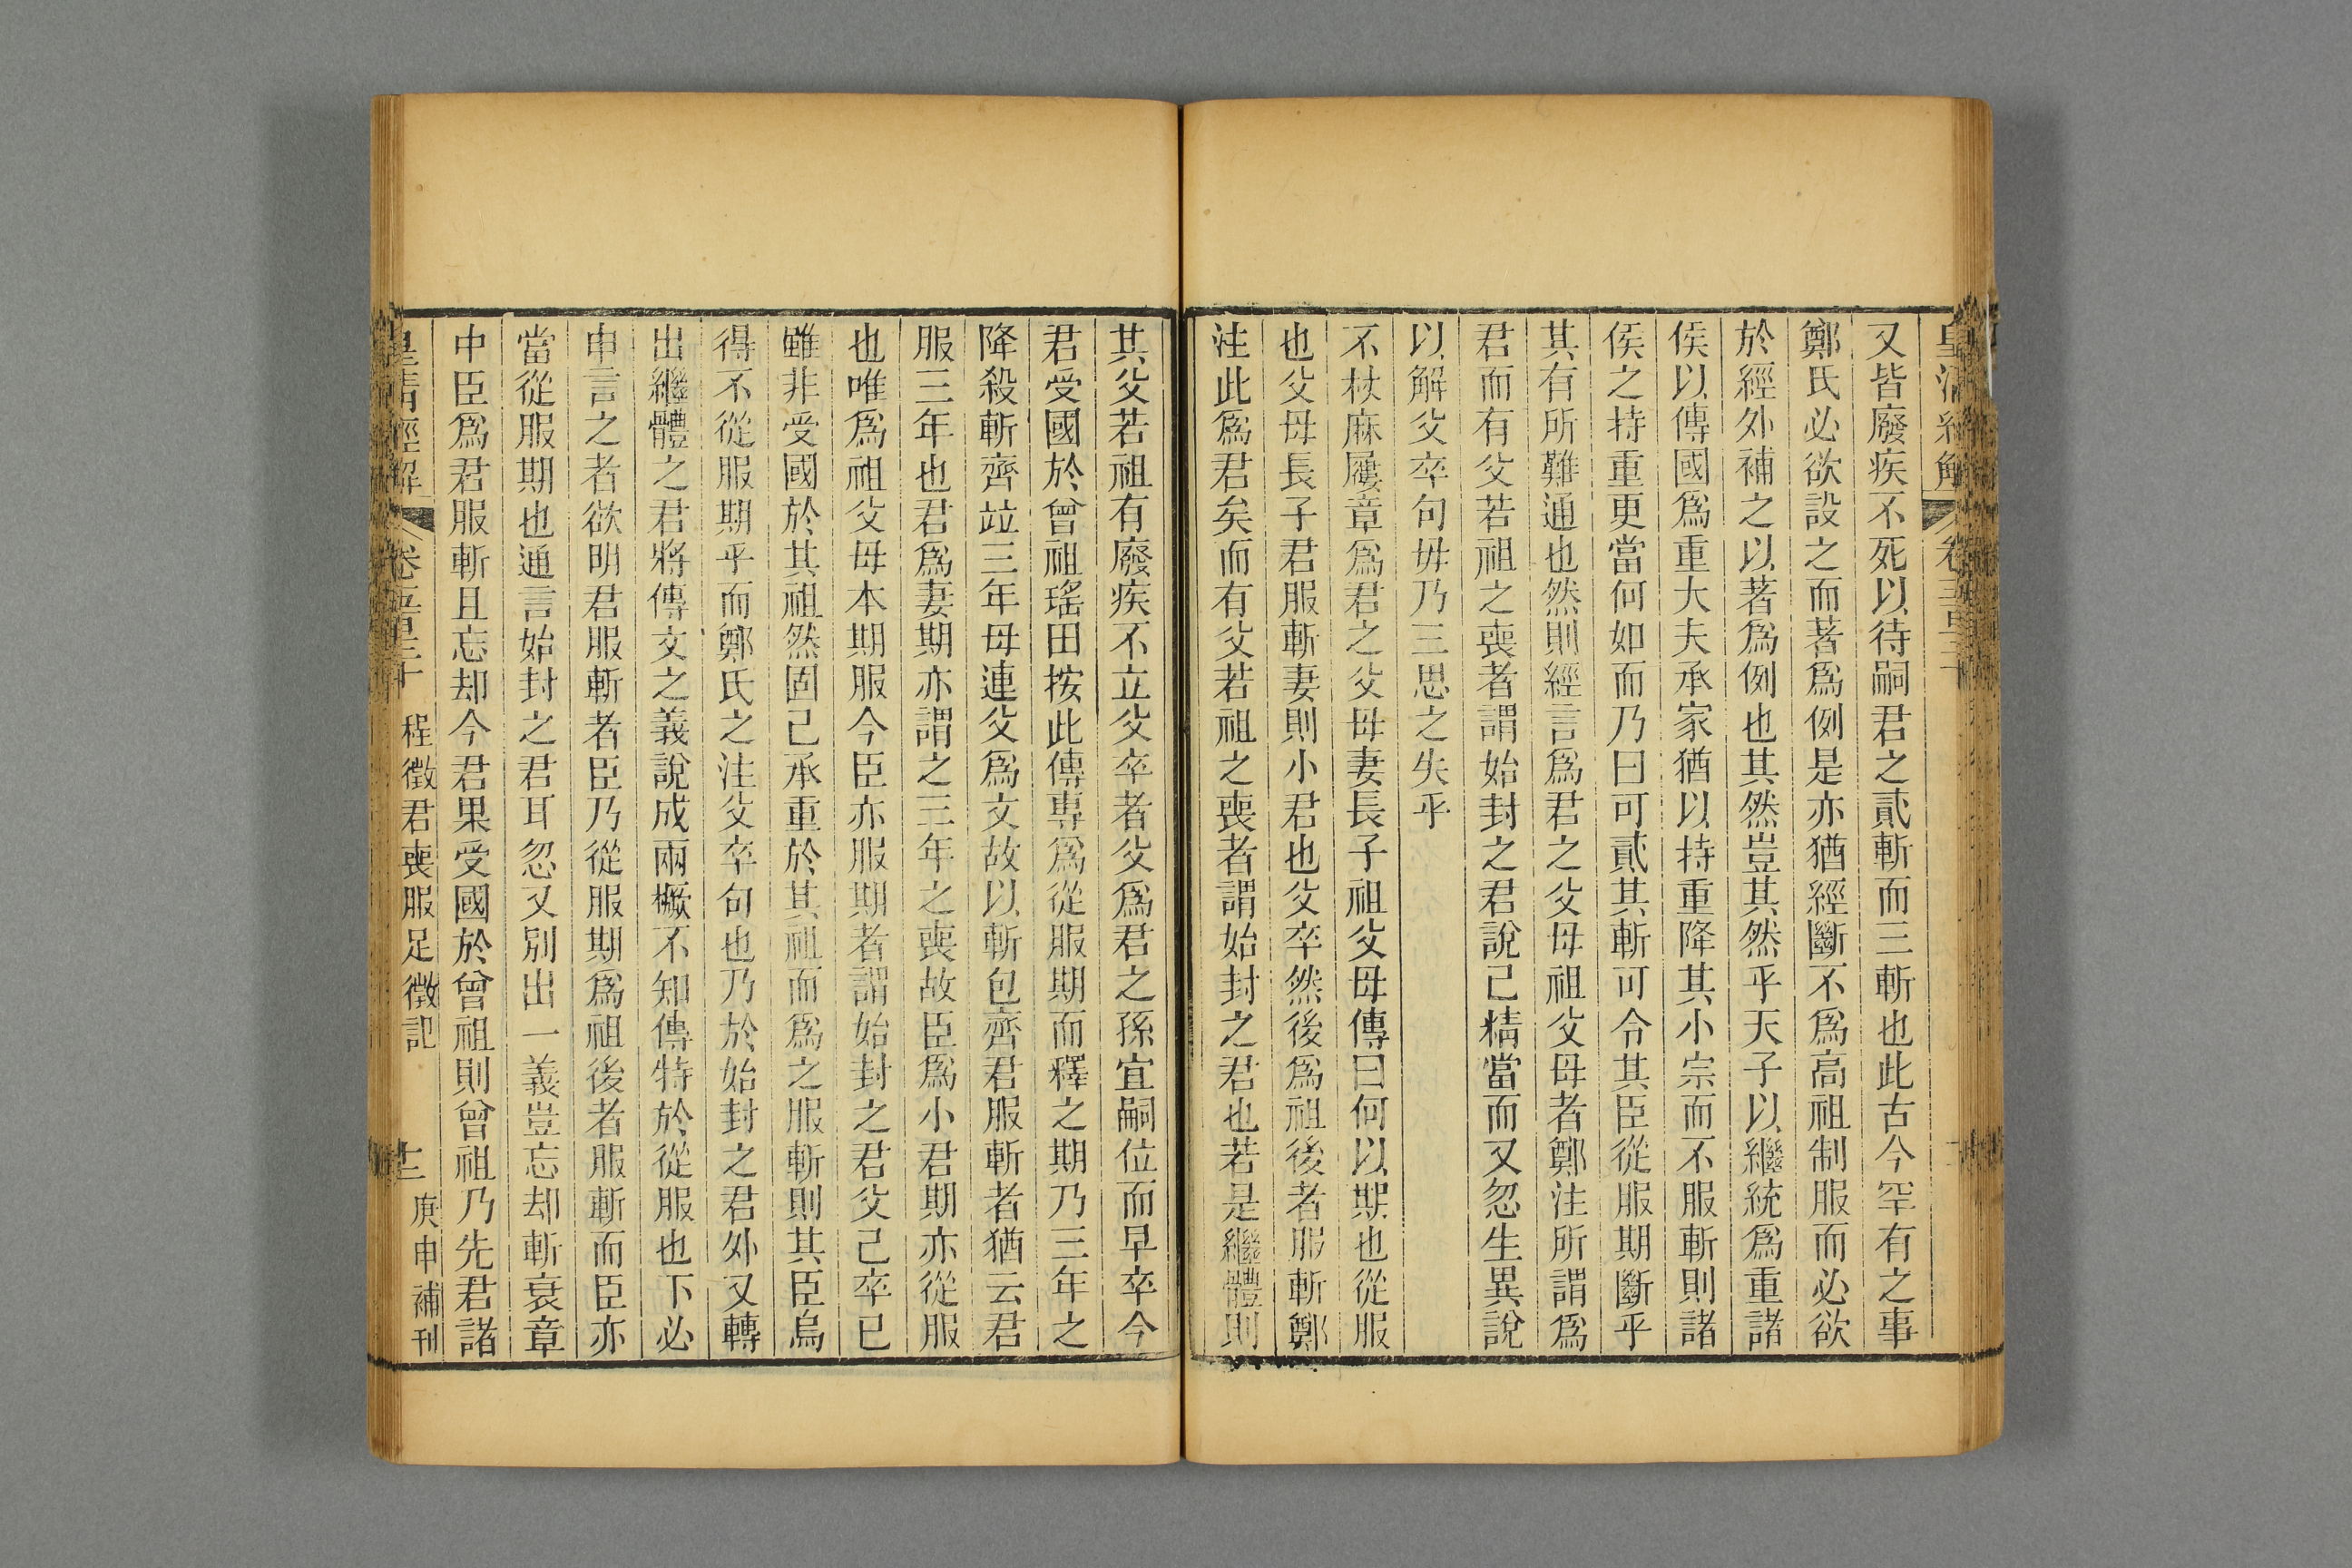 皇清經解
又皆廢疾不死以待嗣君之貳斬而三斬也此古今罕有之事
鄭氏必欲設之而著爲例是亦猶經斷不爲高祖制服而必欲
於經外補之以著爲例也其然豈其然乎天子以繼統爲重諸
侯以傳國爲重大夫承家猶以持重降其小宗而不服斬則諸
侯之持重更當何如而乃曰可貳其斬可令其臣從服期斷乎
其有所難通也然則經言爲君之父母祖父母者鄭注所謂爲
君而有父若祖之喪者謂始封之君說已精當而又忽生異說
以解父卒句毋乃三思之失乎
不杖麻屨章爲君之父母妻長子祖父母傳曰何以期也從服
也父母長子君服斬妻則小君也父卒然後爲祖後者服斬鄭
注此爲君矣而有父若祖之喪者謂始封之君也若是繼體則
其父若祖有廢疾不立父卒者父爲君之孫宜嗣位而早卒今
君受國於曾祖瑤田按此傳專爲從服期而釋之期乃三年之
降殺斬齊竝三年母連父爲文故以斬包齊君服斬者猶云君
服三年也君爲妻期亦謂之三年之喪故臣爲小君期亦從服
也唯爲祖父母本期服今臣亦服期者謂始封之君父已卒已
雖非受國於其祖然固已承重於其祖而爲之服斬則其臣烏
得不從服期乎而鄭氏之注父卒句也乃於始封之君外又轉
出繼體之君將傳文之義說成兩橛不知傳特於從服也下必
申言之者欲明君服斬者臣乃從服期爲祖後者服斬而臣亦
當從服期也通言始封之君耳忽又別出一義豈忘却斬衰章
中臣爲君服斬且忘却今君果受國於曾祖則曾祖乃先君諸
皇清經解 卷五百三十 程徵君喪服足徵記 十二 庚申補刊